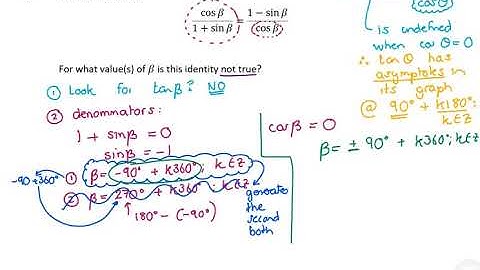 cosβ / 1 + sinβ = 1 − sinβ / cosβ
For what value(s) of β is this identity not true?
① Look for tanβ? NO
② denominators:
1 + sinβ = 0
sinβ = -1
-90+360° ① β = -90° + k360°; k∈Z
② β = 270° + k360°; k∈Z
180° - (-90°)
generates
the
second
both
cosβ = 0
β = ± 90° + k360°; k∈Z
cosθ
is undefined
when cosθ=0
∴ tanθ has
asymptotes in
its graph
@ 90° + k180°;
k∈Z